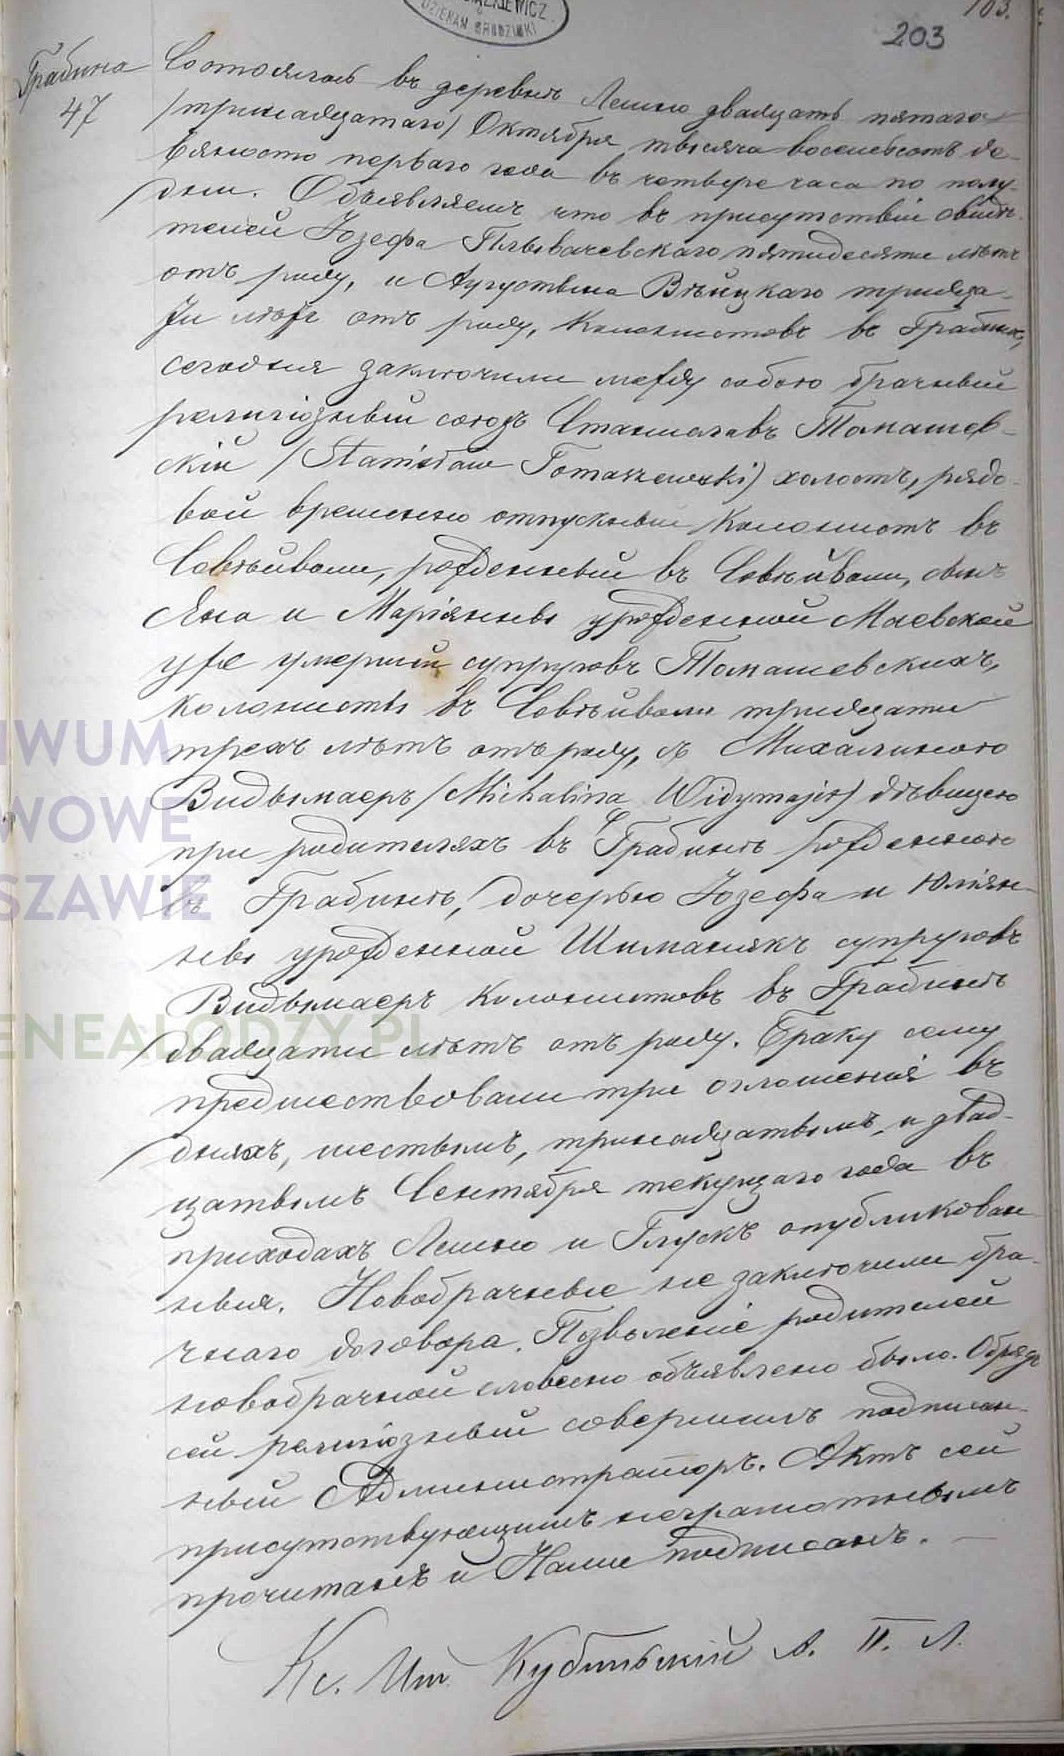 103.
203
DZIEKAN GRODZISKI
Грабина
47
Состоялось въ деревнѣ Лешно двадцать пятаго
/тринадцатаго/ Октября тысяча восемьсотъ де-
вяносто перваго года въ четвере часа по полу-
дни. Объявляемъ что въ присутствіи свидѣ-
телей Юзефа Пływачевскаго пятидесяти лѣтъ
отъ роду, и Августына Вѣйцкаго тридца-
ти лѣтъ отъ роду, колонистовъ въ Грабинѣ,
сегодня заключили между собою брачный
религіозный союзъ Станиславъ Томашев-
скій /Stanisław Tomaszewski/ холостъ, рядо-
вой временно отпускный колонистъ въ
рожденный въ сынъ
Яна и Маріянны урожденной Маевской
уже умершй супруговъ Томашевскихъ,
колонистъ въ тридцати
трехъ лѣтъ отъ роду, съ Михалиною
Видымаеръ /Michalina Widymajer/ дѣвицею
при родителяхъ въ Грабинѣ рожденною
въ Грабинѣ, дочерью Юзефа и Юліян-
ны урожденной Шиманякъ супруговъ
Видымаеръ колонистовъ въ Грабинѣ
двадцати лѣтъ отъ роду. Браку сему
предшествовали три оглошенія въ
дняхъ, шестымъ, тринадцатымъ и двад-
цатымъ Сентября текущаго года въ
приходахъ Лешно и Глускъ опубликован-
ныя. Новобрачные не заключили бра-
чнаго договора. Позволеніе родителей
новобрачной словесно объявлено было. Обрядъ
сей религіозный совершилъ подписан-
ный Администраторъ. Актъ сей
присутствующимъ неграмотнымъ
прочитанъ и Нами подписанъ. —
Кс. Иг. А. П. Л.
IWUM
WOWE
SZAWIE
ENEALODZY.PL